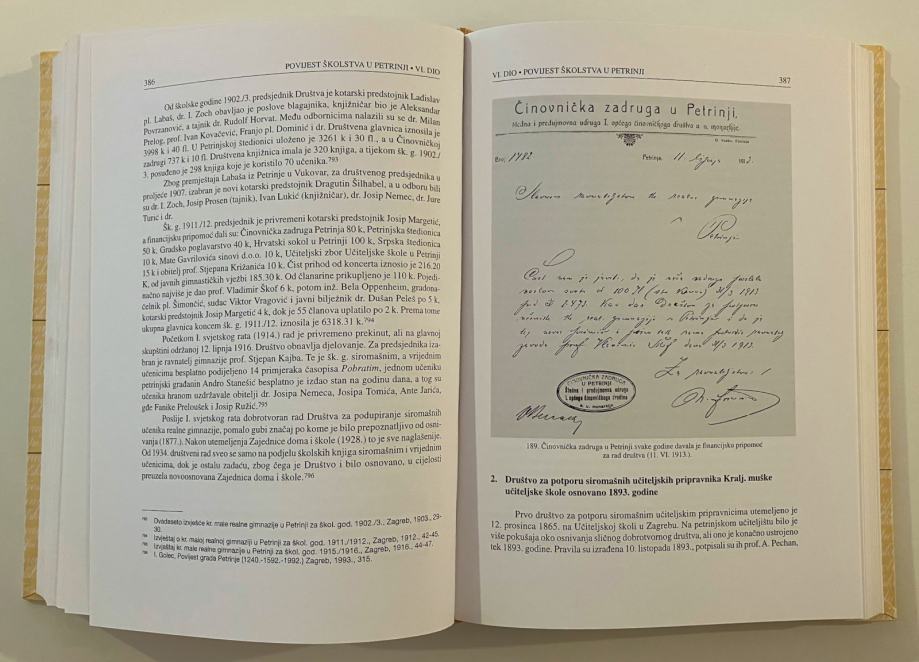 386
POVIJEST ŠKOLSTVA U PETRINJI • VI. DIO
Od školske godine 1902./3. predsjednik Društva je kotarski predstojnik Ladislav
pl. Labaš, dr. I. Zoch obavljao je poslove blagajnika, knjižničar bio je Aleksandar
Povrzanović, a tajnik dr. Rudolf Horvat. Među odbornicima nalazili su se dr. Milan
Prelog, prof. Ivan Kovačević, Franjo pl. Dominić i dr. Društvena glavnica iznosila je
3998 k i 40 fl. U Petrinjskoj štedionici uloženo je 3261 k i 30 fl., a u Činovničkoj
zadrugi 737 k i 10 fl. Društvena knjižnica imala je 320 knjiga, a tijekom šk. g. 1902./
3. posuđeno je 298 knjiga koje je koristilo 70 učenika.793
Zbog premještaja Labaša iz Petrinje u Vukovar, za društvenog predsjednika u
proljeće 1907. izabran je novi kotarski predstojnik Dragutin Šilhabel, a u odboru bili
su dr. I. Zoch, Josip Prosen (tajnik), Ivan Lukić (knjižničar), dr. Josip Nemec, dr. Jure
Turić i dr.
Šk. g. 1911/12. predsjednik je privremeni kotarski predstojnik Josip Margetić,
a financijsku pripomoć dali su: Činovnička zadruga Petrinja 80 k, Petrinjska štedionica
50 k, Gradsko poglavarstvo 40 k, Hrvatski sokol u Petrinji 100 k, Srpska štedionica
10 k, Mate Gavrilovića sinovi d.o.o. 10 k, Učiteljski zbor Učiteljske škole u Petrinji
15 k i obitelj prof. Stjepana Križanića 10 k. Čist prihod od koncerta iznosio je 216.20
K, od javnih gimnastičkih vježbi 185.30 k. Od članarine prikupljeno je 110 k. Pojedi-
načno najviše je dao prof. Vladimir Škof 6 k, potom inž. Bela Oppenheim, gradona-
čelnik pl. Šimončić, sudac Viktor Vragović i javni bilježnik dr. Dušan Peleš po 5 k,
kotarski predstojnik Josip Margetić 4 k, dok je 55 članova uplatilo po 2 k. Prema tome
ukupna glavnica koncem šk. g. 1911./12. iznosila je 6318.31 k.794
Početkom I. svjetskog rata (1914.) rad je privremeno prekinut, ali na glavnoj
skupštini održanoj 12. lipnja 1916. Društvo obnavlja djelovanje. Za predsjednika iza-
bran je ravnatelj gimnazije prof. Stjepan Kajba. Te je šk. g. siromašnim, a vrijednim
učenicima besplatno podijeljeno 14 primjeraka časopisa Pobratim, jednom učeniku
petrinjski građanin Andro Stanešić besplatno je izdao stan na godinu dana, a tog su
učenika hranom uzdržavale obitelji dr. Josipa Nemeca, Josipa Tomića, Ante Jarića,
gđe Fanike Preloušek i Josip Ružić.795
Poslije I. svjetskog rata dobrotvoran rad Društva za podupiranje siromašnih
učenika realne gimnazije, pomalo gubi značaj po kome je bilo prepoznatljivo od osni-
vanja (1877.). Nakon utemeljenja Zajednice doma i škole (1928.) to je sve naglašenije.
Od 1934. društveni rad sveo se samo na podjelu školskih knjiga siromašnim i vrijednim
učenicima, dok je ostalu zadaću, zbog čega je Društvo i bilo osnovano, u cijelosti
preuzela novoosnovana Zajednica doma i škole.796
793 Dvadeseto izvješće kr. male realne gimnazije u Petrinji za škol. god. 1902./3., Zagreb, 1903., 29-
30.
794 Izvještaj o kr. maloj realnoj gimnaziji u Petrinji za škol. god. 1911./1912., Zagreb, 1912., 42-45.
795 Izvještaj kr. male realne gimnazije u Petrinji za škol. god. 1915./1916., Zagreb, 1916., 44-47.
796 I. Golec, Povijest grada Petrinje (1240.-1592.-1992.) Zagreb, 1993., 315.
VI. DIO • POVIJEST ŠKOLSTVA U PETRINJI
387
Činovnička zadruga u Petrinji,
štedna i predujmovna udruga I. općega činovničkoga društva a. u. monarhije.
Broj 1482
Petrinja, 11. lipnja 1913.
Petrinja
ČINOVNIČKA ZADRUGA
U PETRINJI
štedna i predujmovna udruga
I. općega činovničkoga društva
a. u. monarhije
189. Činovnička zadruga u Petrinji svake godine davala je financijsku pripomoć
za rad društva (11. VI. 1913.).
2. Društvo za potporu siromašnih učiteljskih pripravnika Kralj. muške
učiteljske škole osnovano 1893. godine
Prvo društvo za potporu siromašnim učiteljskim pripravnicima utemeljeno je
12. prosinca 1865. na Učiteljskoj školi u Zagrebu. Na petrinjskom učiteljištu bilo je
više pokušaja oko osnivanja sličnog dobrotvornog društva, ali ono je konačno ustrojeno
tek 1893. godine. Pravila su izrađena 10. listopada 1893., potpisali su ih prof. A. Pechan,